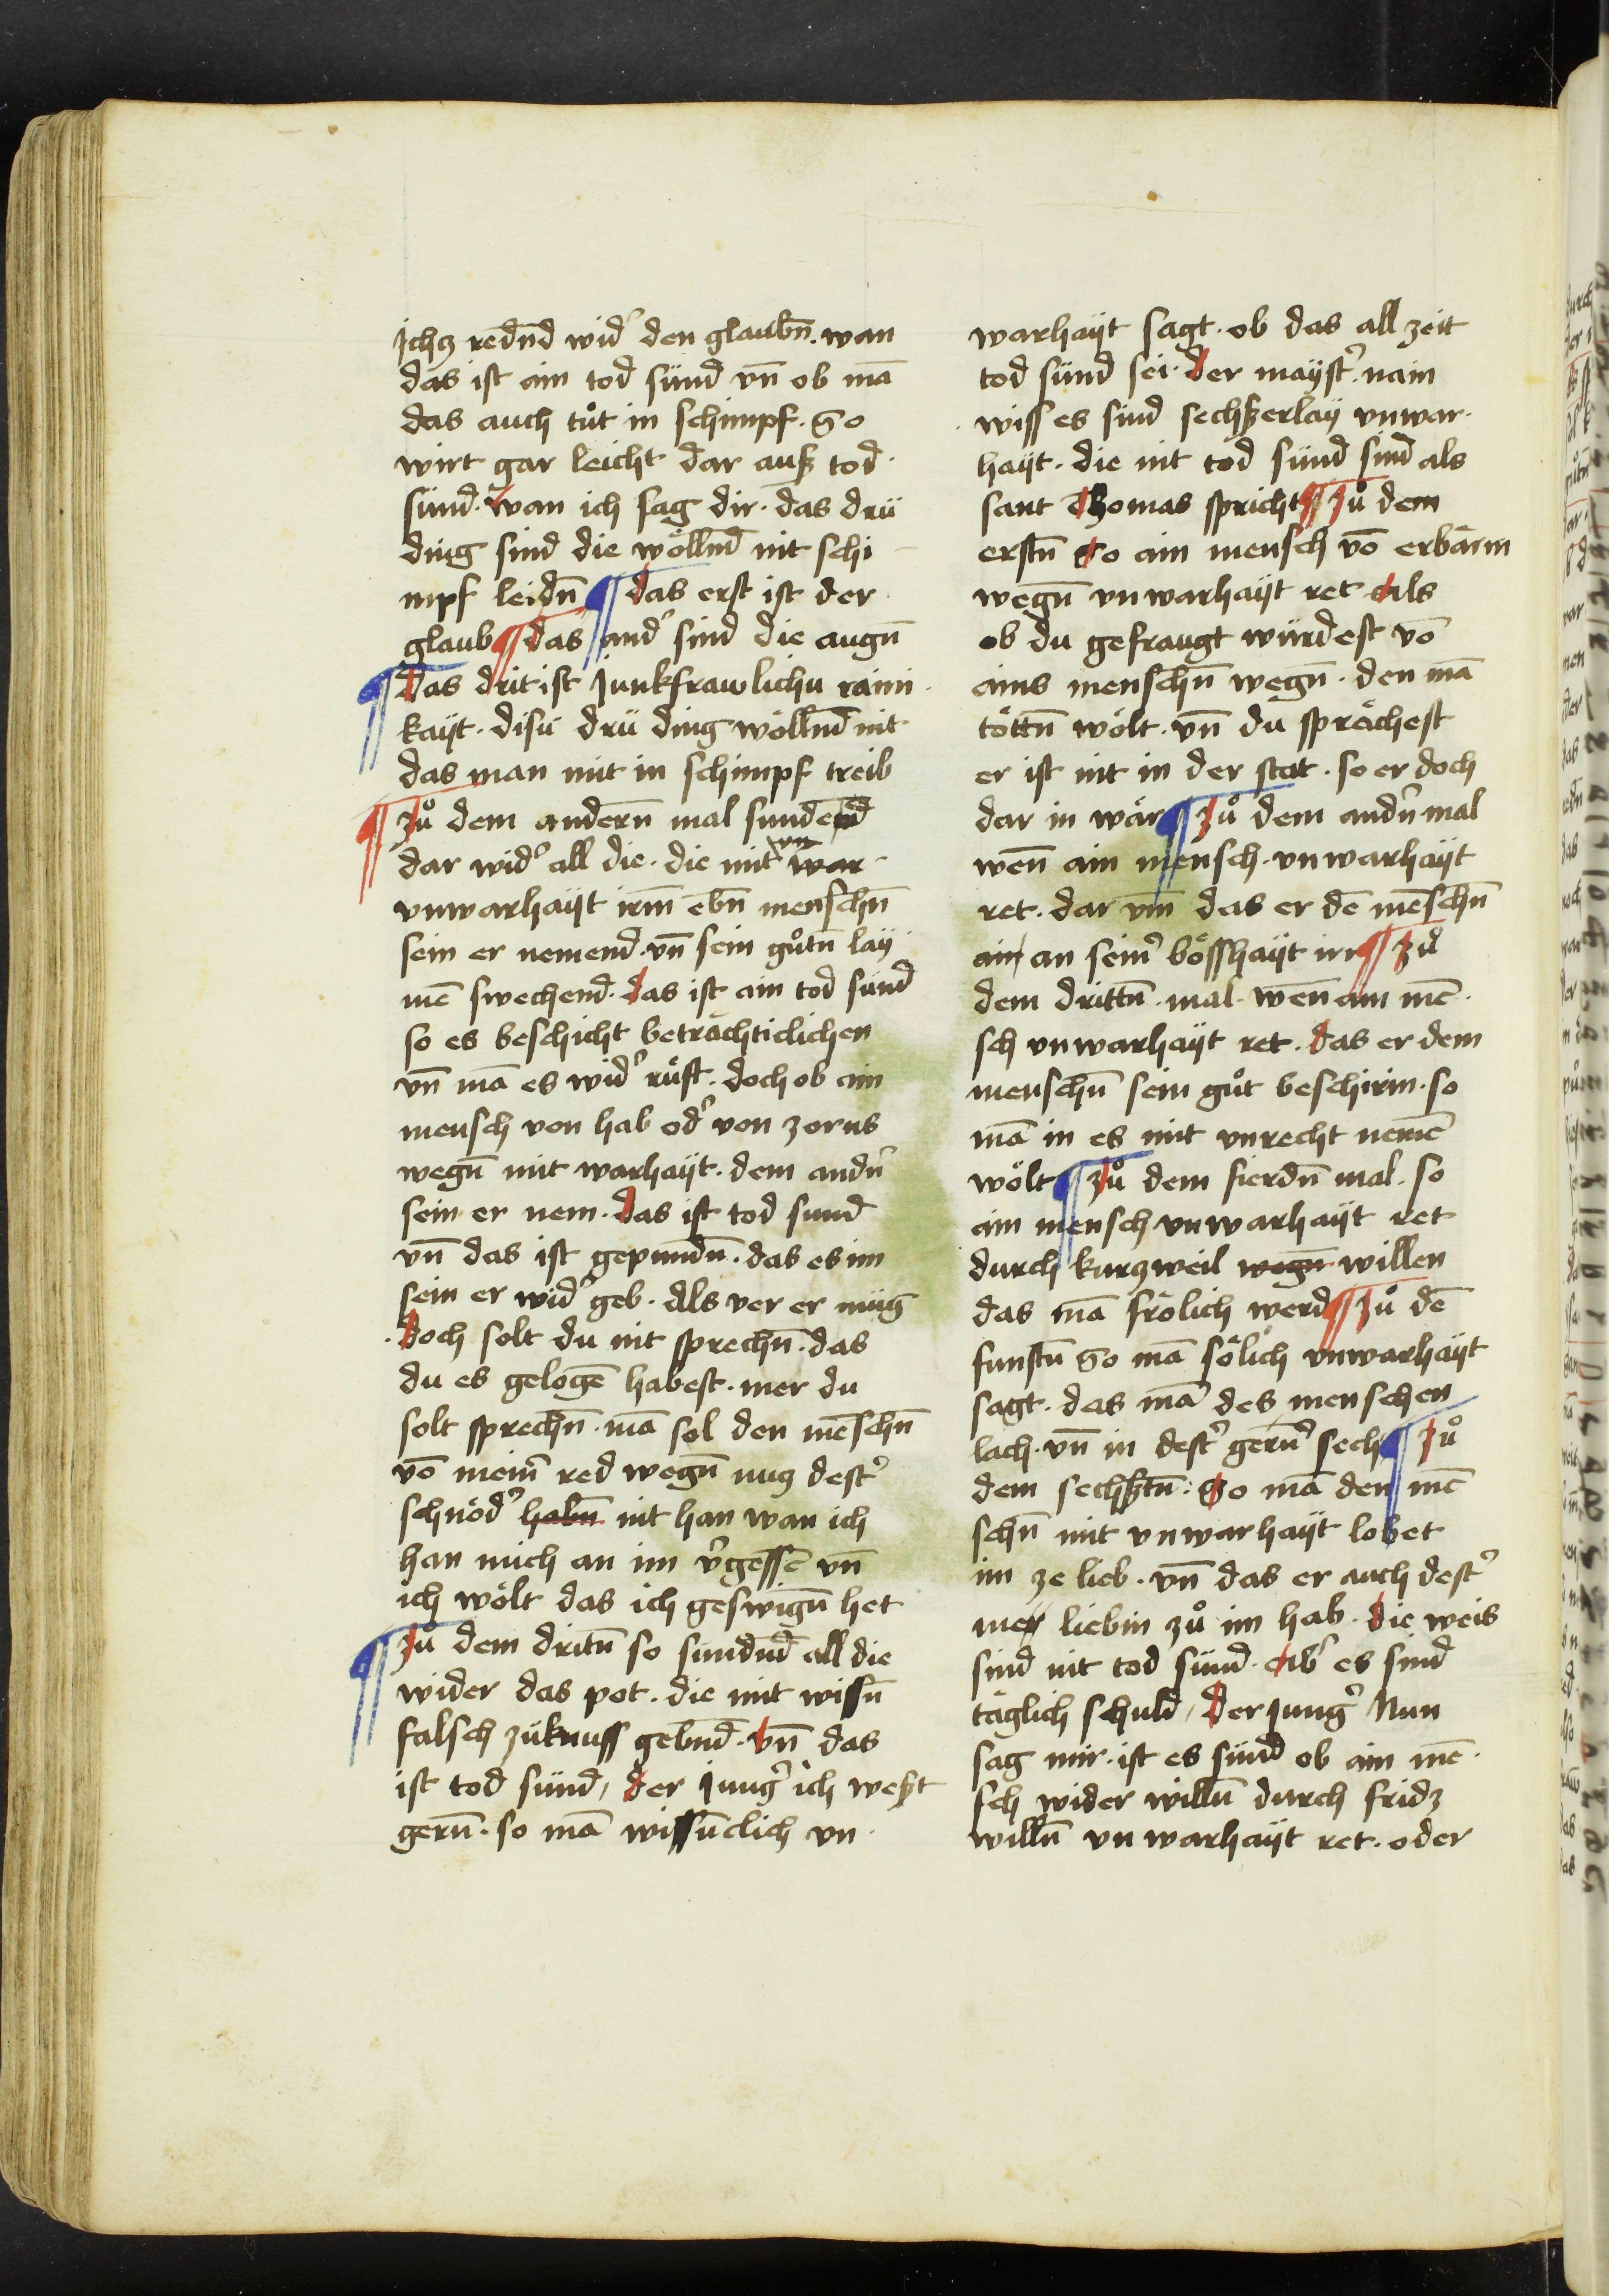 ichz redn̄d wid' den glaubn̄. wan
das ist ain tod sünd vn̄ ob mā
das auch tůt in schimpf. So
wirt gar leicht dar auß tod
sünd. wan ich sag dir. das drü
ding sind die wöllnd nit schi
mpf leidn̄ ¶ das erst ist der
glaub ¶ das and' sind die augn̄
¶ das drit ist Junkfrawlichu raini
kayt. disu drü ding wöllnd nit
das man mit in schimpf treib
¶ Zů dem andern̄ mal sundend
dar wid' all die. die mit vn war
vnwarhayt irm̄ ebn̄ menschn̄
sein er nemend. vn̄ sein gůtn̄ lay
mē swechend. das ist ain tod sünd
so es beschicht betrăchticlichen
vn̄ mā es wid' rüft. doch ob ain
mensch von hab od' von zorns
wegn̄ mit warhayt. dem andn̄
sein er nem. das ist tod sund
vn̄ das ist gepundn̄. das es im
sein er wid' geb. Als ver er müg
doch solt du nit sprechn̄. das
du es gelogē habest. mer du
solt sprechn̄. mā sol den mēschn̄
vō mein' red wegn̄ nuz dest'
schnöd' habn̄ nit han wan ich
han mich an im v'gessē vn̄
ich wölt das ich geswign̄ het
¶ Zů dem dritn̄ so sundnd all die
wider das pot. die mit wissn̄
falsch züknuss gebnd. vn̄ das
ist tod sünd, der Jung' ich west
gern̄. so mā wissn̄clich vn
warhayt sagt. ob das all zeit
tod sünd sei. der mayst'. nain
wiss es sind sechßerlay vnwar
hayt. die nit tod sünd sind als
sant Thomas spricht ¶ Zů dem
erstn̄ So ain mensch vō erbärm
wegn̄ vnwarhayt ret. als
ob du gefraugt würdest vō
ains menschn̄ wegn̄. den mā
töttn̄ wölt. vn̄ du sprächest
er ist nit in der stat. so er doch
dar in wär ¶ Zů dem andn̄ mal
wen̄ ain mensch. vnwarhayt
ret. dar vm̄ das er dē mēschn̄
ain an sein' bösshayt irr ¶ Zů
dem drittn̄. mal. wen̄ ain mē
sch vnwarhayt ret. das er dem
menschn̄ sein gůt beschirm. so
mā in es mit vnrecht nemē
wölt ¶ Zů dem fierdn̄ mal. so
ain mensch vnwarhayt ret
durch kurzweil wegn̄ willen
das mā frölich werd ¶ Zů dē
funftn̄ So mā sölich vnwarhayt
sagt. das mā des menschen
lach. vn̄ in dest' gern' sech ¶ Zů
dem sechßtn̄: So mā den mē
schn̄ mit vnwarhayt lobet
im ze lieb. vn̄ das er auch dest'
mer liebin zů im hab. die weis
sind nit tod sünd. ab' es sind
täglich schuld, der Jung' Nun
sag mir. ist es sünd ob ain mē
sch wider willn̄ durch fridz
willn̄ vnwarhayt ret. oder